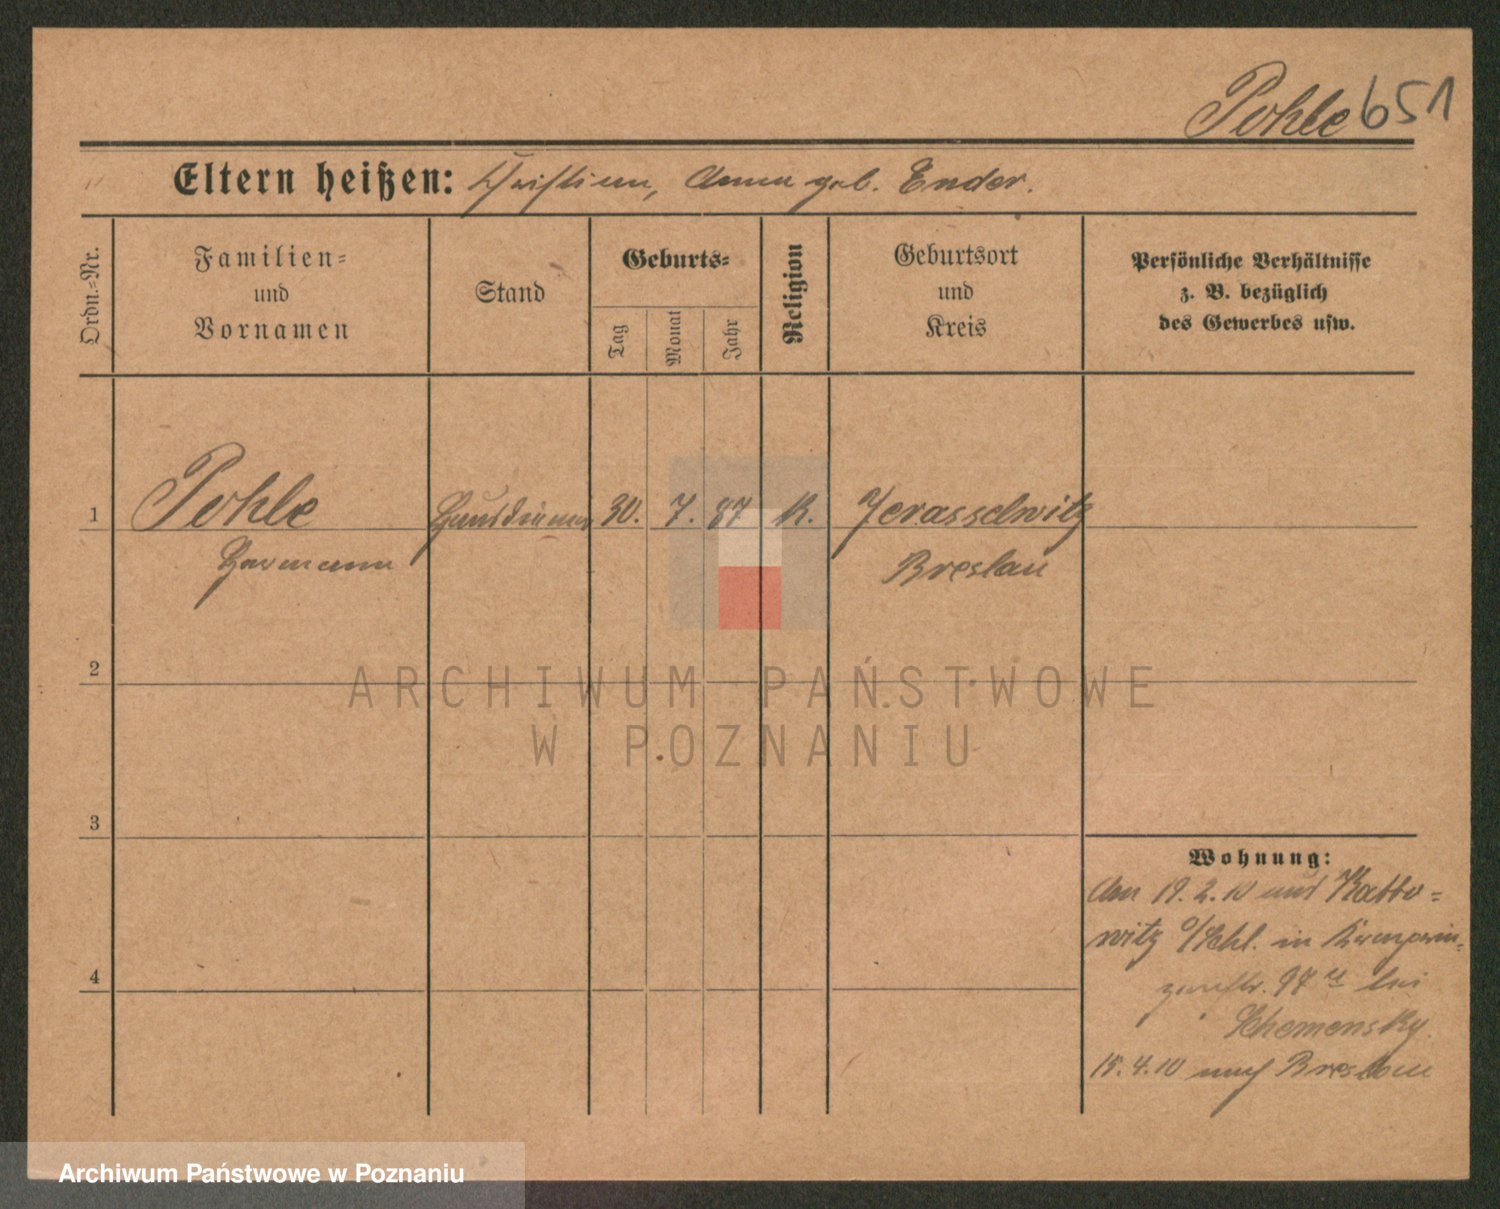 Pohle 651
Eltern heißen: Christian, Anna geb. Ender.
Ordn.=Nr.
Familien=
und
Vornamen
Stand
Geburts=
Tag
Monat
Jahr
Religion
Geburtsort
und
Kreis
Persönliche Verhältnisse
z. B. bezüglich
des Gewerbes usw.
1 Pohle Hausdiener 30. 7. 87 K. Jerasselwitz
Hermann Breslau
2
ARCHIWUM PAŃSTWOWE
W POZNANIU
3
Wohnung:
Am 19.2.10 aus Katto=
witz O/Schl. in
4
97 bei
Schemensky.
15.4.10 nach Breslau
Archiwum Państwowe w Poznaniu